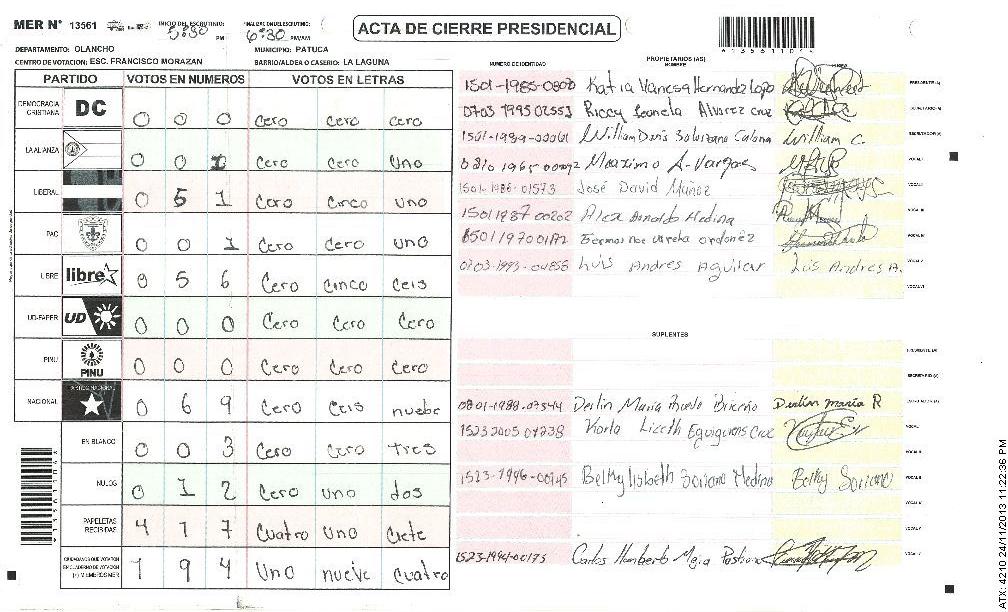 MER N° 13561 INICIO DEL ESCRUTINIO: 5:30 PM FINALIZACION ESCRUTINIO: 6:30 PM/AM
ACTA DE CIERRE PRESIDENCIAL
DEPARTAMENTO: OLANCHO MUNICIPIO: PATUCA
CENTRO DE VOTACION: ESC. FRANCISCO MORAZAN BARRIO/ALDEA O CASERIO: LA LAGUNA
PARTIDO VOTOS EN NUMEROS VOTOS EN LETRAS
DEMOCRACIA CRISTIANA DC 0 0 0 Cero cero cero
LA ALIANZA 0 0 1 Cero Cero Uno
LIBERAL 0 5 1 Cero Cinco uno
PAC 0 0 1 Cero Cero uno
LIBRE libre 0 5 6 Cero cinco ceis
UD-FAPER UD 0 0 0 Cero Cero Cero
PINU PINU 0 0 0 Cero Cero Cero
NACIONAL PARTIDO NACIONAL 0 6 9 Cero Ceis nuebe
EN BLANCO 0 0 3 Cero Cero tres
NULOS 0 1 2 Cero uno dos
PAPELETAS RECIBIDAS 4 1 7 Cuatro Uno Ciete
CIUDADANOS QUE VOTARON EN CUADERNO DE VOTACION (+) MIEMBROS MER 1 9 4 Uno nueve cuatro
NUMERO DE IDENTIDAD PROPIETARIOS (AS) NOMBRE FIRMA
1501-1985-0808 Katia Vanesa Hernandez Lopo PRESIDENTE (A)
0703 1995 02553 Riccy Leonela Alvarez Cruz SECRETARIO (A)
1501-1989-00061 William Denis Solorzano Calona William C. ESCRUTADOR (A)
0210 1965 00092 Maximo A. Vargas VOCAL I
1501-1986-01573 José David Muñoz VOCAL II
1501 1987 00202 Alex Donaldo Medina VOCAL III
VOCAL IV
0703-1993-04858 Luis Andres Aguilar Luis Andres A. VOCAL V
VOCAL VI
SUPLENTES
PRESIDENTE (A)
SECRETARIO (A)
0801-1988-07544 Derlin Maria Derlin maria R ESCRUTADOR (A)
1523 2005 07238 Karla Liceth Cruz VOCAL I
VOCAL II
1523-1996-00945 Belky lisbeth Soriano Medina Belky Soriano VOCAL III
VOCAL V
1523-1994-00175 Carlos Humberto Mejia
ATX: 4210 24/11/2013 11:22:36 PM